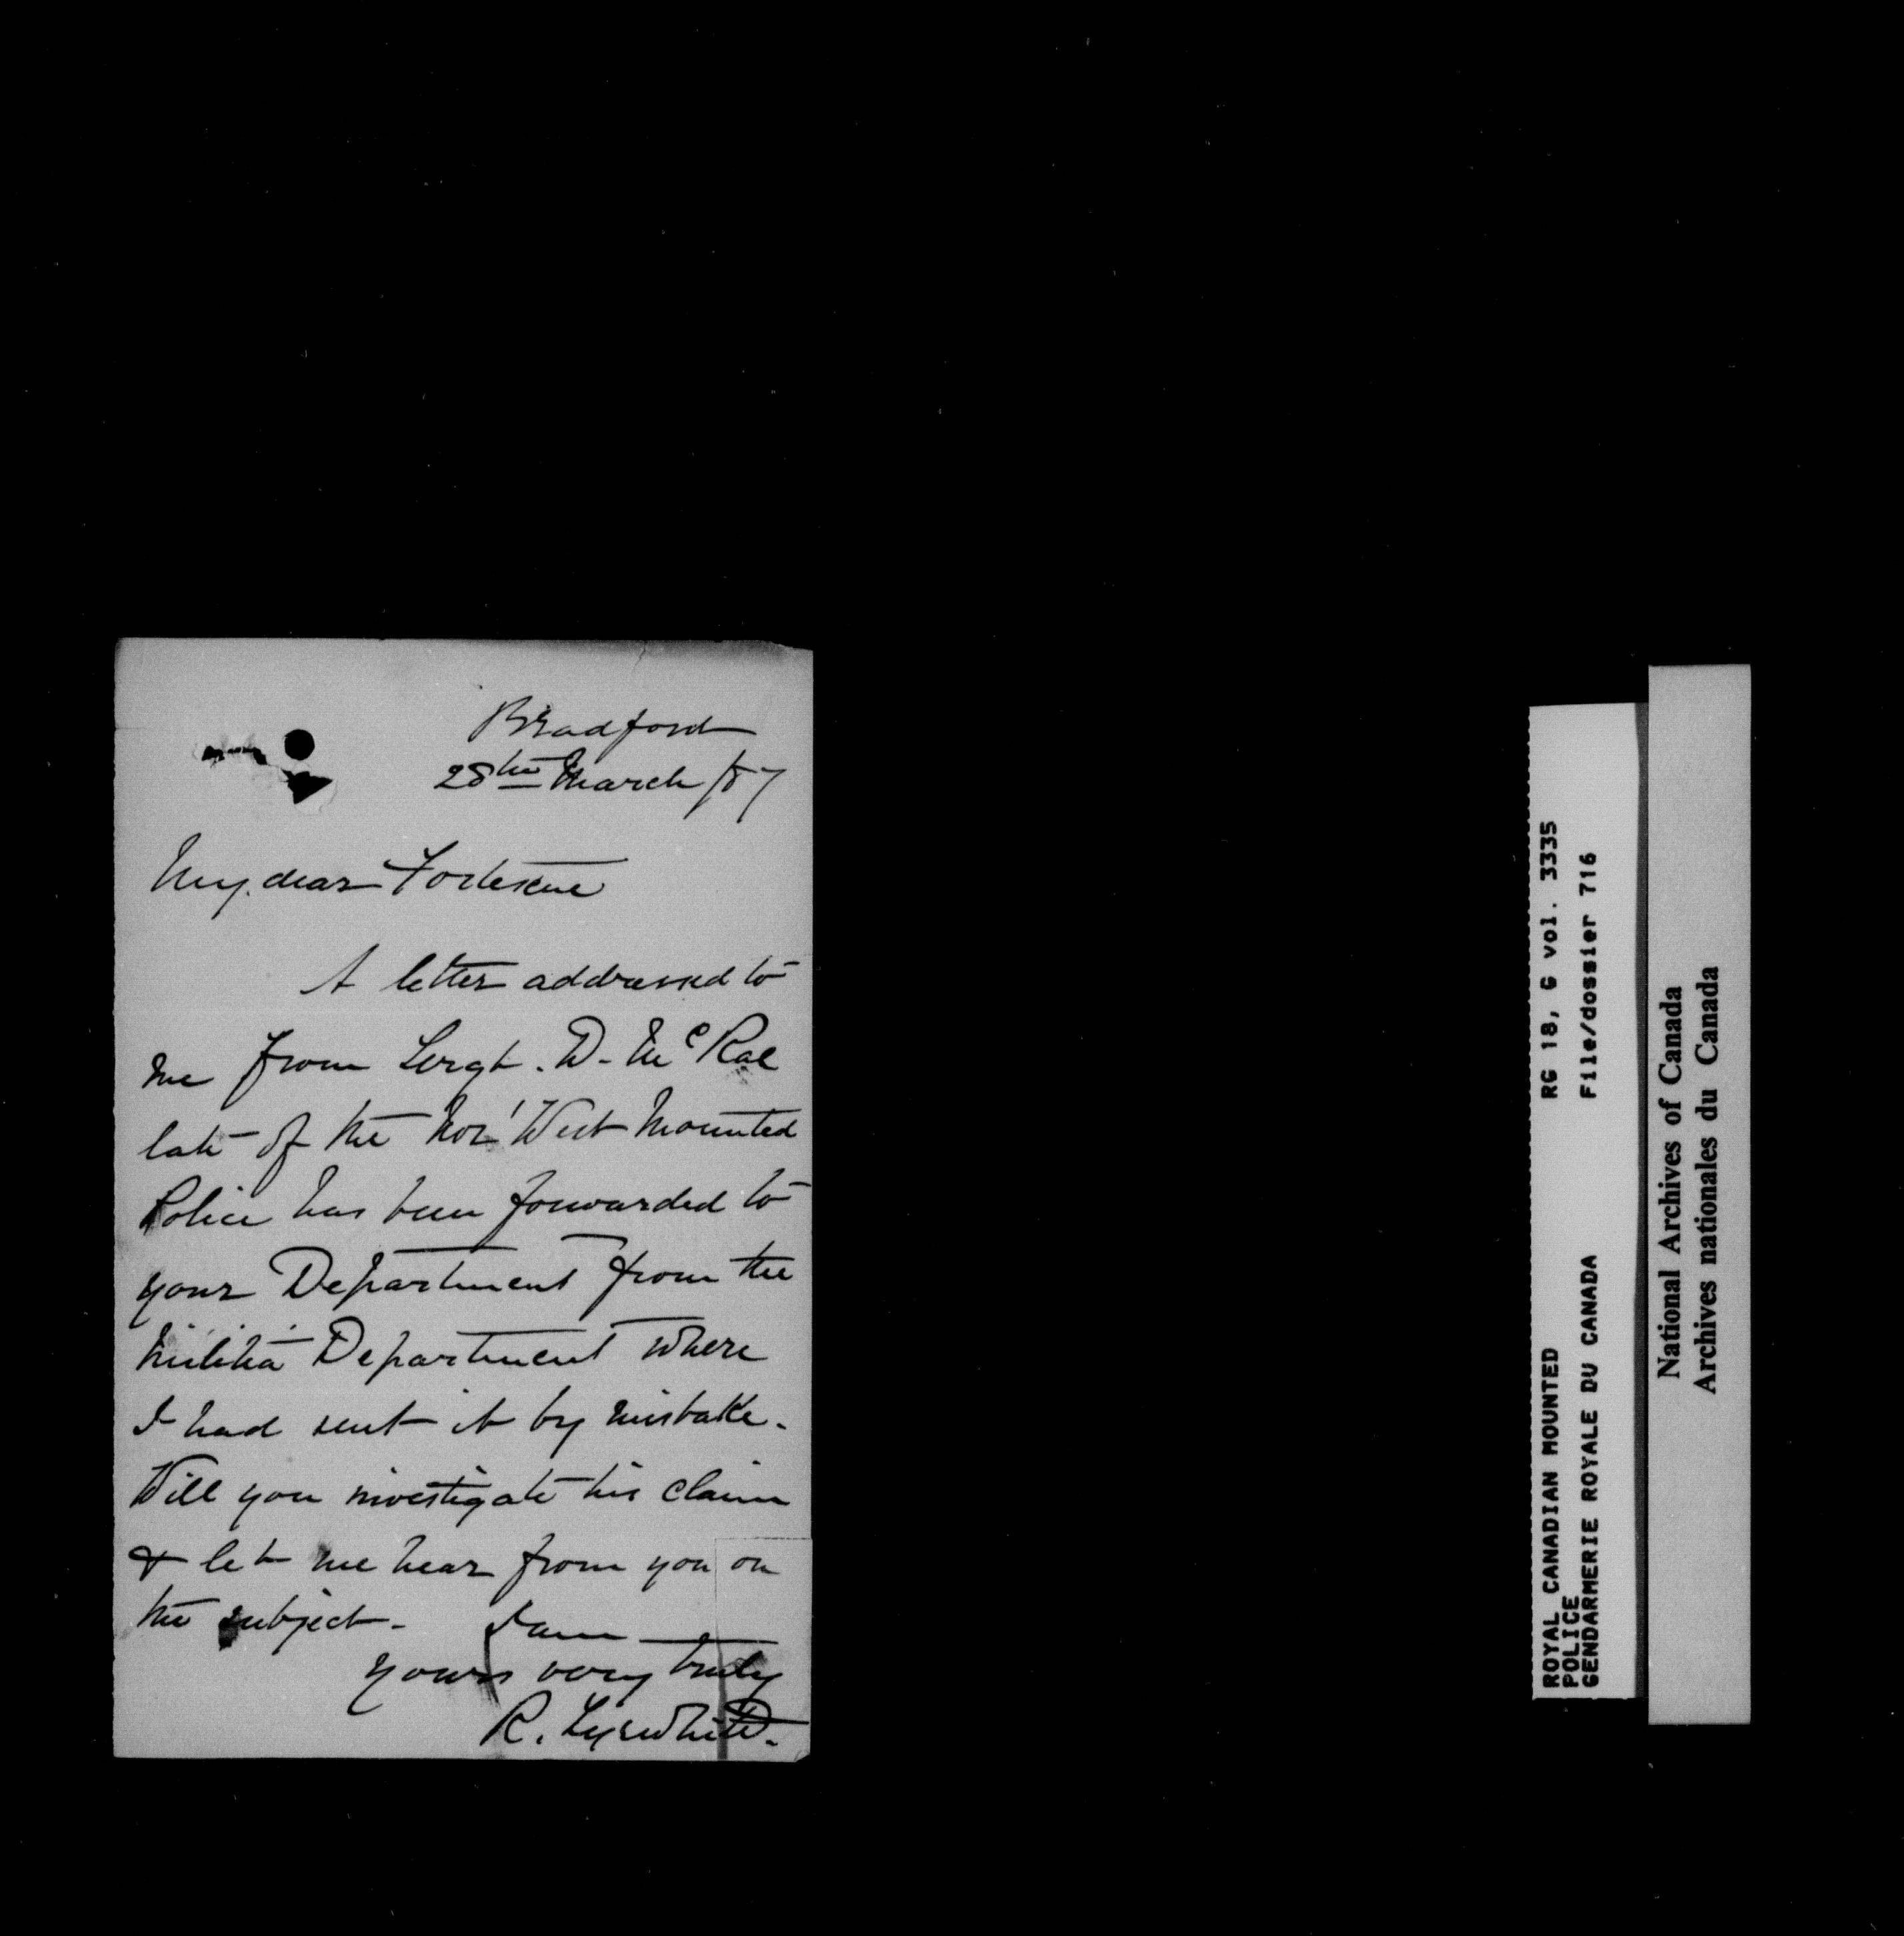 Bradford
28th March /87
My dear Fortescue
A letter addressed to
me from Sergt. D. McRae
late of the Nor' West Mounted
Police has been forwarded to
your Department from the
Militia Department where
I had sent it by mistake.
Will you investigate his claim
& let me hear from you on
the subject. I am
yours very truly
R. Tyrwhitt.
ROYAL CANADIAN MOUNTED RG 18, G vol. 3335
POLICE File/dossier 716
GENDARMERIE ROYALE DU CANADA
National Archives of Canada
Archives nationales du Canada